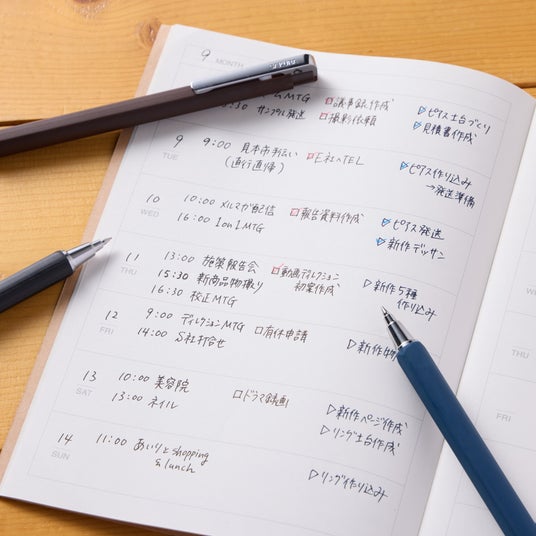 9 MONTH
MTG □議事録作成 ▷ピアス土台づくり
サンプル発送 □撮影依頼 ▷見積書作成
9 TUE 9:00 見本市手伝い □E社へTEL ▷ピアス作り込み
(直行直帰) →発送準備
10 WED 10:00 メルマガ配信 □報告資料作成 ▷ピアス発送
16:00 1on1MTG ▷新作デッサン
11 THU 13:00 施策報告会 □動画ディレクション ▷新作5種
15:30 新商品物撮り 初案作成 作り込み
16:30 校正MTG
12 FRI 9:00 ディレクションMTG □有休申請 ▷新作物
14:00 S社打合せ
13 SAT 10:00 美容院 □ドラマ録画 ▷新作ページ作成
13:00 ネイル ▷リング土台作成
14 SUN 11:00 あいりとshopping ▷リング作り込み
& lunch
WED
THU
FRI